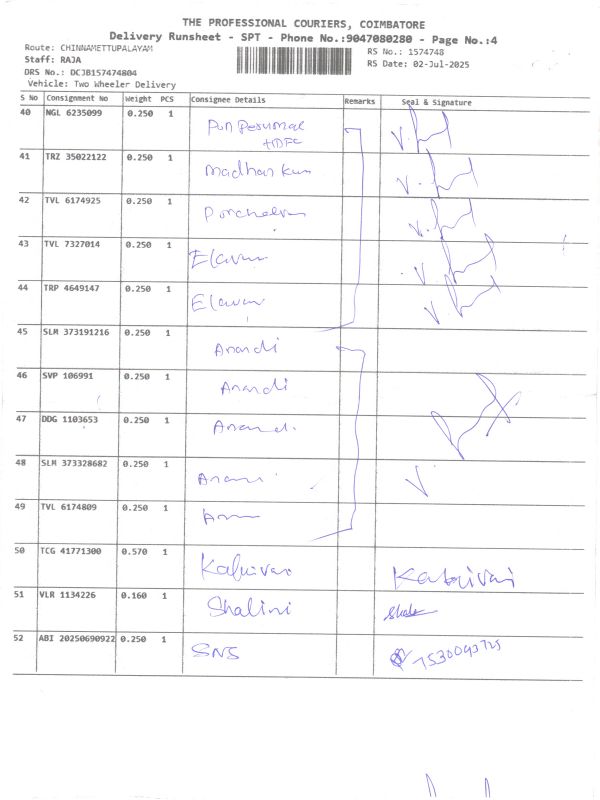 THE PROFESSIONAL COURIERS, COIMBATORE
Delivery Runsheet - SPT - Phone No.:9047080280 - Page No.:4
Route: CHINNAMETTUPALAYAM
RS No.: 1574748
Staff: RAJA
RS Date: 02-Jul-2025
DRS No.: DCJB157474804
Vehicle: Two Wheeler Delivery
S No Consignment No Weight PCS Consignee Details Remarks Seal & Signature
40 NGL 6235099 0.250 1 Pon Perumal
HDFC
41 TRZ 35022122 0.250 1 Madhan
42 TVL 6174925 0.250 1
43 TVL 7327014 0.250 1 Elavan
44 TRP 4649147 0.250 1 Elavan
45 SLM 373191216 0.250 1 Anandi
46 SVP 106991 0.250 1 Anandi
47 DDG 1103653 0.250 1 Anandi
48 SLM 373328682 0.250 1
49 TVL 6174809 0.250 1
50 TCG 41771300 0.570 1
51 VLR 1134226 0.160 1 Shalini
52 ABI 20250690922 0.250 1 SNS 7530093725